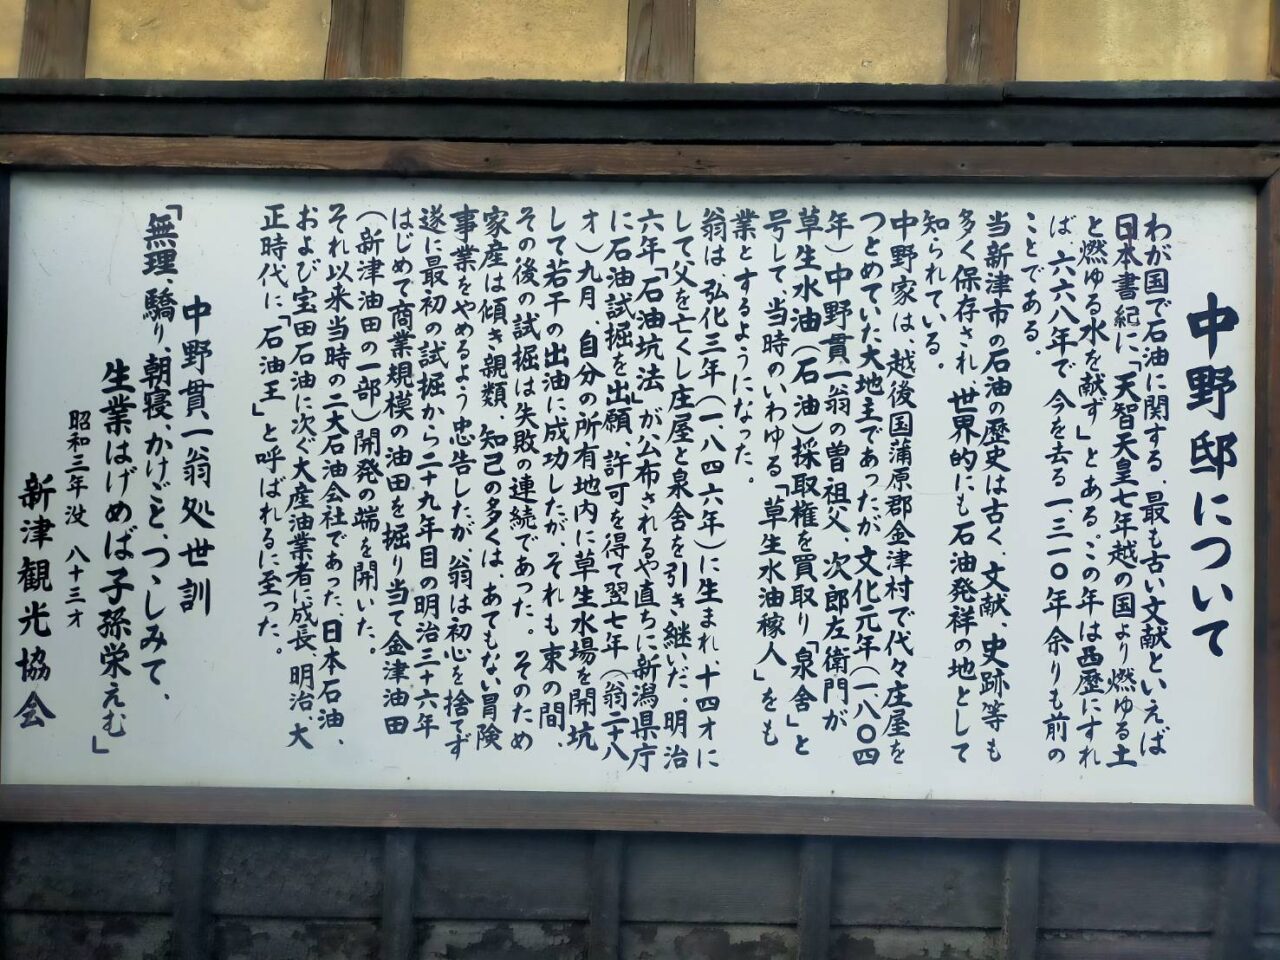 中野邸について
わが国で石油に関する、最も古い文献といえば
日本書紀に「天智天皇七年越の国より燃ゆる土
と燃ゆる水を献ず」とある。この年は西歴にすれ
ば、六六八年で、今を去る一、三一〇年余りも前の
ことである。
当新津市の石油の歴史は古く、文献、史跡等も
多く保存され、世界的にも石油発祥の地として
知られている。
中野家は、越後国蒲原郡金津村で代々庄屋を
つとめていた大地主であったが、文化元年(一八〇四
年)中野貫一翁の曽祖父、次郎左衛門が
草生水油(石油)採取権を買取り「泉舎」と
号して、当時のいわゆる「草生水油稼人」をも
業とするようになった。
翁は、弘化三年(一、八四六年)に生まれ、十四才に
して父を亡くし庄屋と泉舎を引き継いだ。明治
六年「石油坑法」が公布されるや直ちに新潟県庁
に石油試掘を出願、許可を得て翌七年(翁二十八
才)九月、自分の所有地内に草生水場を開坑
して若干の出油に成功したが、それも束の間、
その後の試掘は失敗の連続であった。そのため
家産は傾き親類、知己の多くは、あてもない冒険
事業をやめるよう忠告したが、翁は初心を捨てず
遂に最初の試掘から二十九年目の明治三十六年
はじめて商業規模の油田を掘り当て金津油田
(新津油田の一部)開発の端を開いた。
それ以来当時の二大石油会社であった、日本石油、
および宝田石油に次ぐ大産油業者に成長、明治、大
正時代に「石油王」と呼ばれるに至った。
中野貫一翁処世訓
「無理、驕り、朝寝、かけごと、つゝしみて、
生業はげめば子孫栄えむ」
昭和三年没 八十三才
新津観光協会